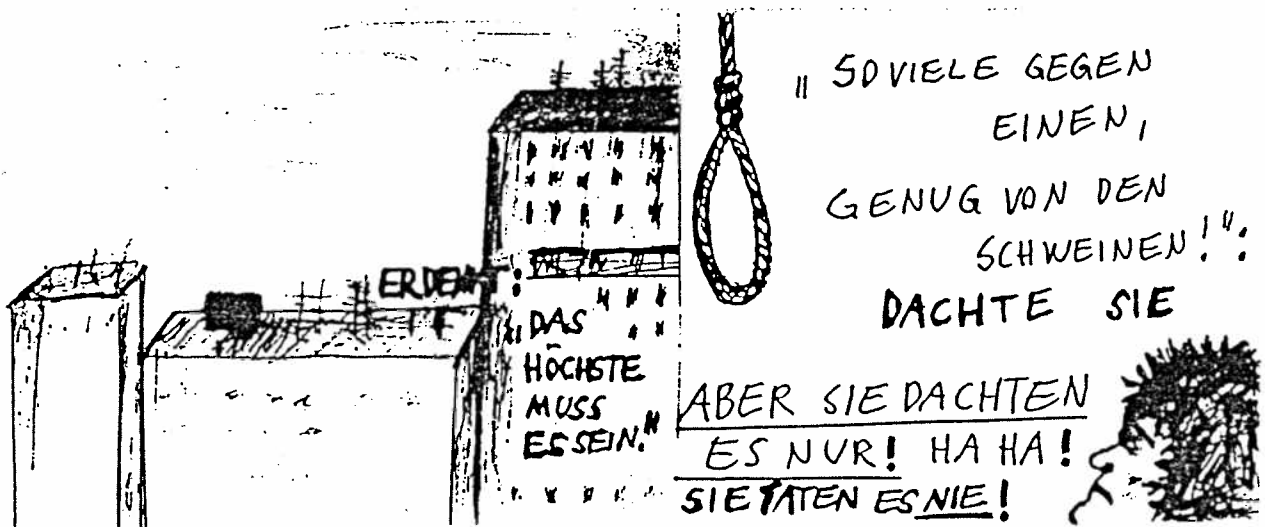 ER DENKT:
„DAS
HÖCHSTE
MUSS
ES SEIN."
„SOVIELE GEGEN
EINEN,
GENUG VON DEN
SCHWEINEN!":
DACHTE SIE
ABER SIE DACHTEN
ES NUR! HA HA!
SIE TATEN ES NIE!